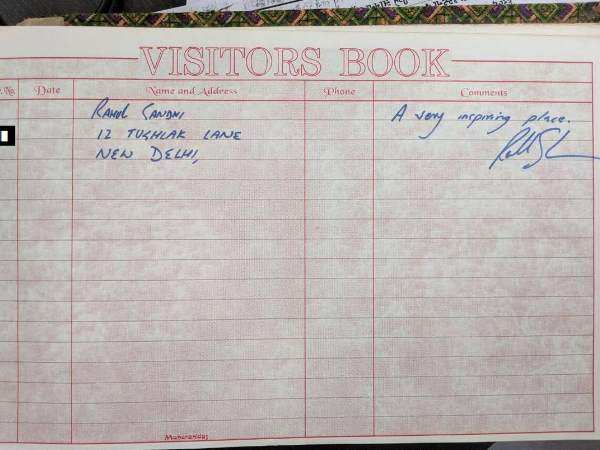 VISITORS BOOK
Date Name and Address Phone Comments
RAHUL GANDHI A very inspiring place.
12 TUGHLAK LANE
NEW DELHI,